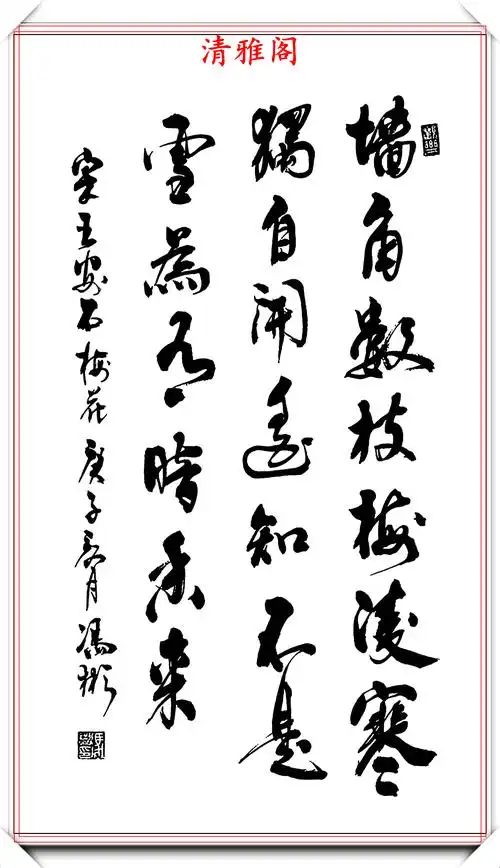 清雅阁
墙角數枝梅凌寒
獨自開遥知不是
雪為有暗香来
宋王安石梅花 庚子月 馮彬